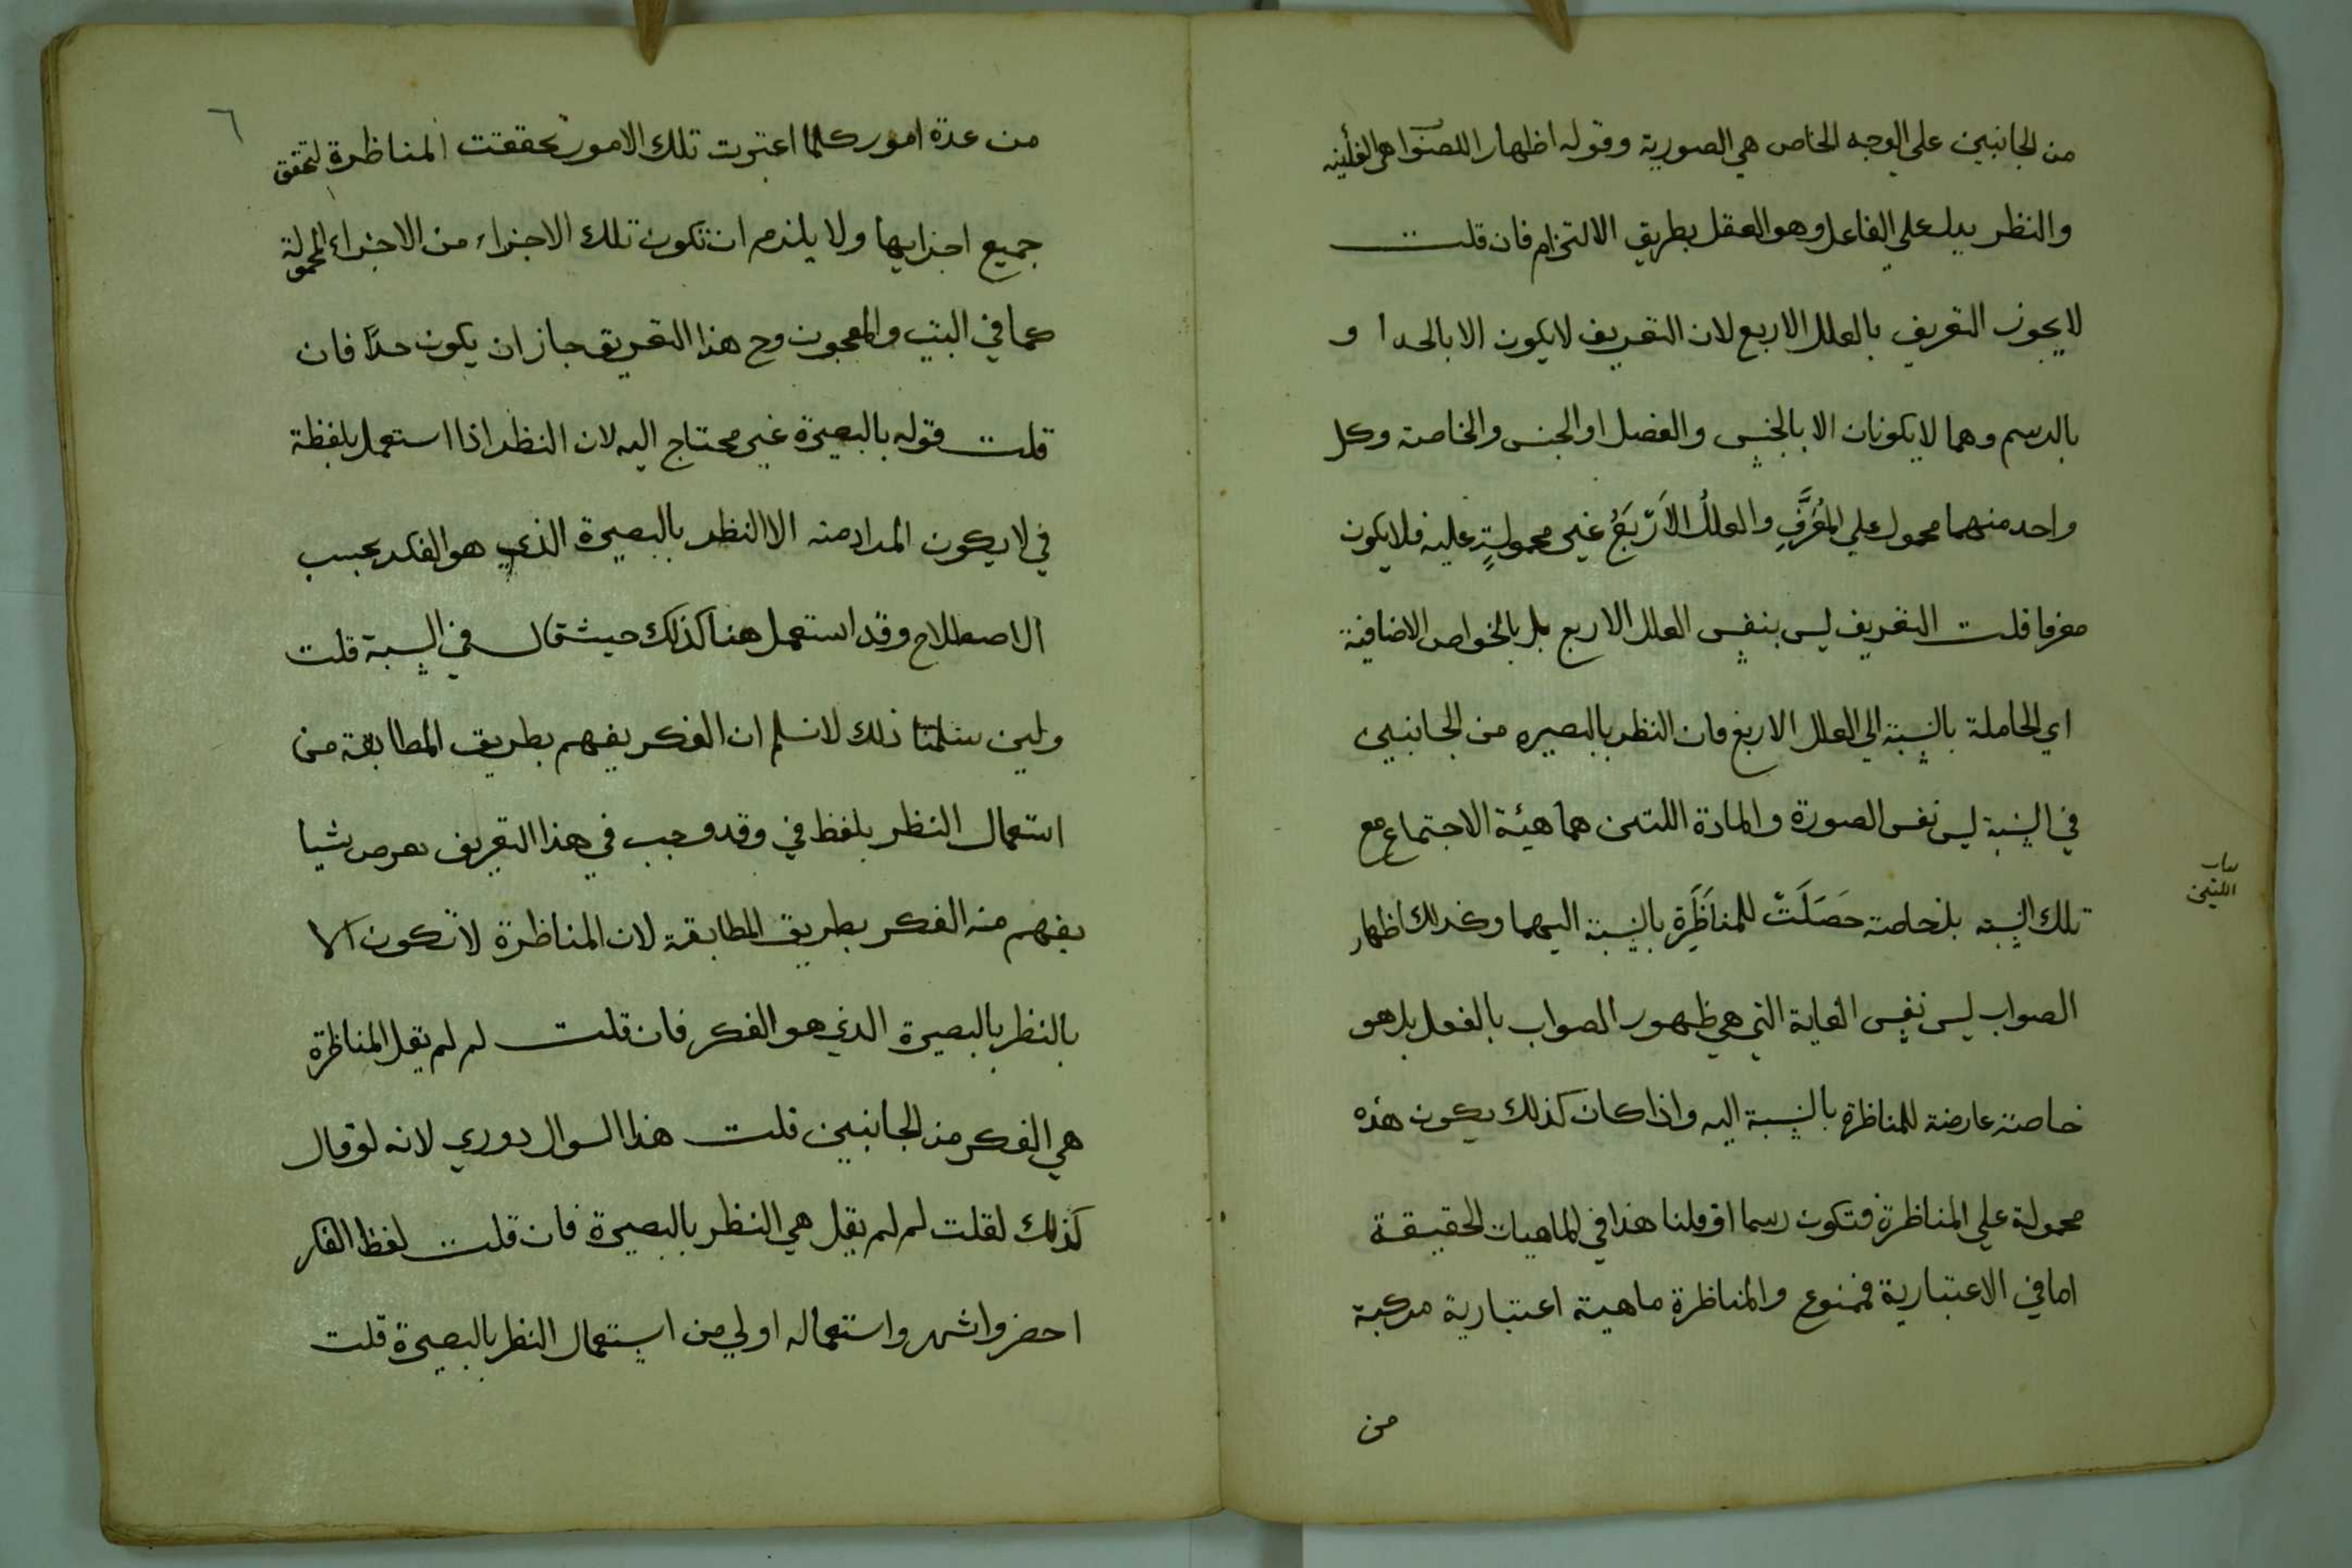 من الجانبين على الوجه الخاص هي الصورية وقوله اظهارا للصواب هي الغائية
والنظر يدل علي الفاعل وهو العقل بطريق الالتزام فان قلت
لا يجوز التعريف بالعلل الاربع لان التعريف لا يكون الا بالحد ا و
بالرسم وهما لا يكونان الا بالجنس والفصل او الجنس والخاصة وكل
واحد منهما محمول علي المُعَرَّفِ والعللُ الاَرْبَعُ غير محمولةٍ عليه فلا يكون
معرفا قلت التعريف ليس بنفس العلل الاربع بل بالخواص الاضافية
اي الحاملة بالنسبة الي العلل الاربع فان النظر بالبصيره من الجانبين
في النسبة ليس نفس الصورة والمادة اللتين هما هيئة الاجتماع مع
تلك النسبة بل خاصة حَصَلَتْ للمناظَرَةِ بالنسبة اليهما وكذلك اظهار
الصواب ليس نفس الغاية التي هي ظهور الصواب بالفعل بل هو
خاصة عارضة للمناظرة بالنسبة اليه واذا كان كذلك يكون هذه
محمولة علي المناظرة فتكون رسما او قلنا هذا في الماهيات الحقيقة
اما في الاعتبارية فممنوع والمناظرة ماهية اعتبارية مركبة
من
اللتين
٦
من عدة امور كلما اعتبرت تلك الامور تحققت المناظرة لتحقق
جميع اجزايها ولا يلزم ان تكون تلك الاجزاء من الاجزاء المحمولة
كما في البيت والمعجون وح هذا التعريف جاز ان يكون حدًّا فان
قلت قوله بالبصيرة غير محتاج اليه لان النظر اذا استعمل بلفظة
في لا يكون المراد منه الا النظر بالبصيرة الذي هو الفكر بحسب
الاصطلاح وقد استعمل هنا كذلك حيث قال في النسبة قلت
ولين سلمنا ذلك لا نسلم ان الفكر يفهم بطريق المطابقة من
استعمال النظر بلفظ في وقد وجب في هذا التعريف شيا
يفهم منه الفكر بطريق المطابقة لان المناظرة لا تكون الا
بالنظر بالبصيرة الذي هو الفكر فان قلت لم لم يقل المناظرة
هي الفكر من الجانبين قلت هذا السوال دوري لانه لو قال
كذلك لقلت لم لم يقل هي النظر بالبصيرة فان قلت لفظ الفكر
احضر واشهر واستعماله اولي من استعمال النظر بالبصيرة قلت